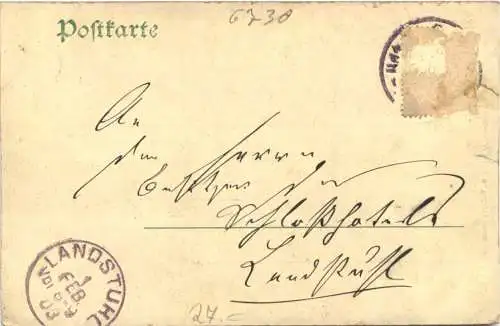 6738
Postkarte
An
den Herrn
Besitzer des
Schloßhotels
Landstuhl
LANDSTUHL
1
FEB
03
27.-